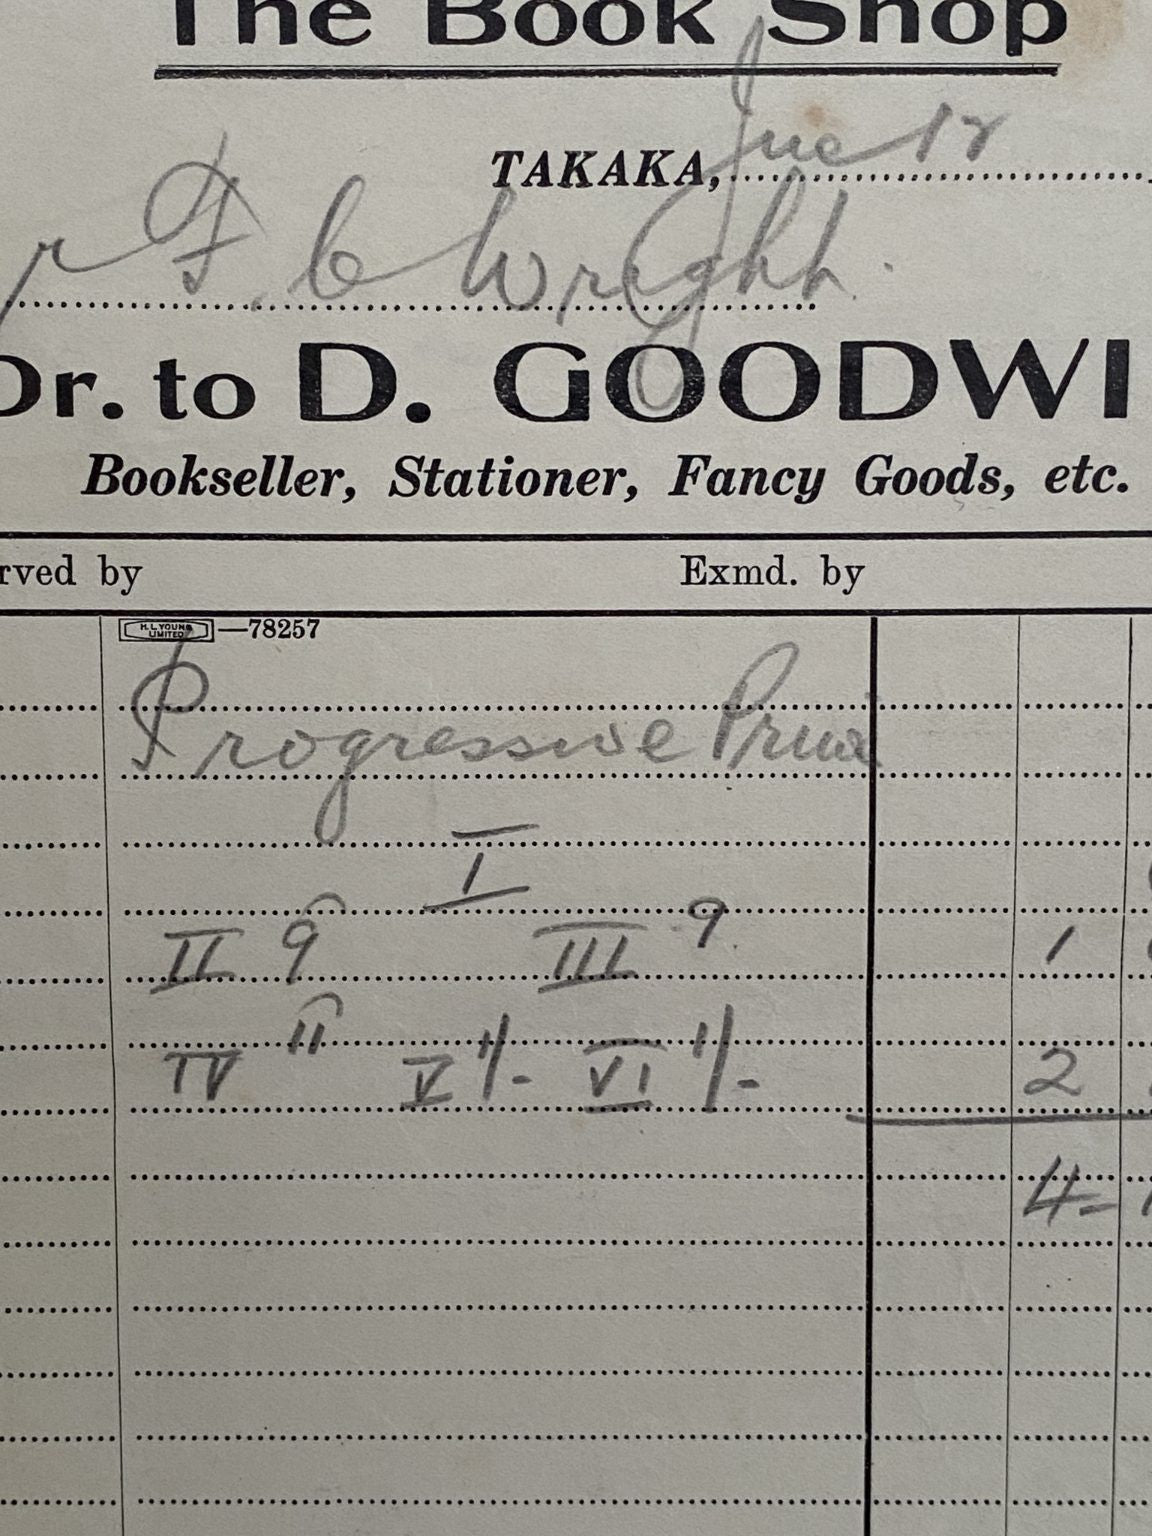 The Book Shop
TAKAKA, June 12
r F. C Wright.
Dr. to D. GOODWI
Bookseller, Stationer, Fancy Goods, etc.
rved by Exmd. by
H.L.YOUNG LIMITED —78257
Progressive
I
II 9 III 9 1
IV 11 V 1/- VI 1/- 2
4-